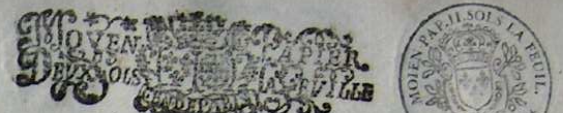 MOYEN PAPIER
DEUX SOLS LA FEUILLE
MOIEN PAP. II. SOLS LA FEUIL.